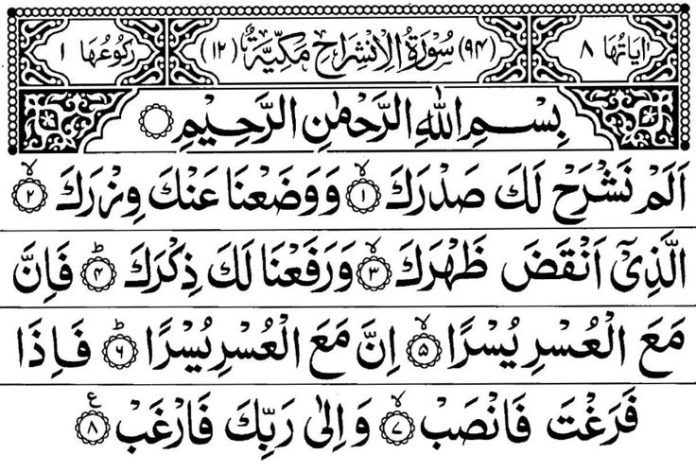 اٰیَاتُهَا ٨ (٩٤) سُوْرَةُ الْاِنْشِرَاحِ مَكِّیَّةٌ (١٢) رُكُوْعُهَا ١
بِسْمِ اللّٰهِ الرَّحْمٰنِ الرَّحِیْمِ
اَلَمْ نَشْرَحْ لَكَ صَدْرَكَ ۙ﴿١﴾ وَ وَضَعْنَا عَنْكَ وِزْرَكَ ۙ﴿٢﴾
الَّذِیْۤ اَنْقَضَ ظَهْرَكَ ۙ﴿٣﴾ وَ رَفَعْنَا لَكَ ذِكْرَكَ ؕ﴿٤﴾ فَاِنَّ
مَعَ الْعُسْرِ یُسْرًا ۙ﴿٥﴾ اِنَّ مَعَ الْعُسْرِ یُسْرًا ؕ﴿٦﴾ فَاِذَا
فَرَغْتَ فَانْصَبْ ۙ﴿٧﴾ وَ اِلٰى رَبِّكَ فَارْغَبْ ﴿٨﴾ ع